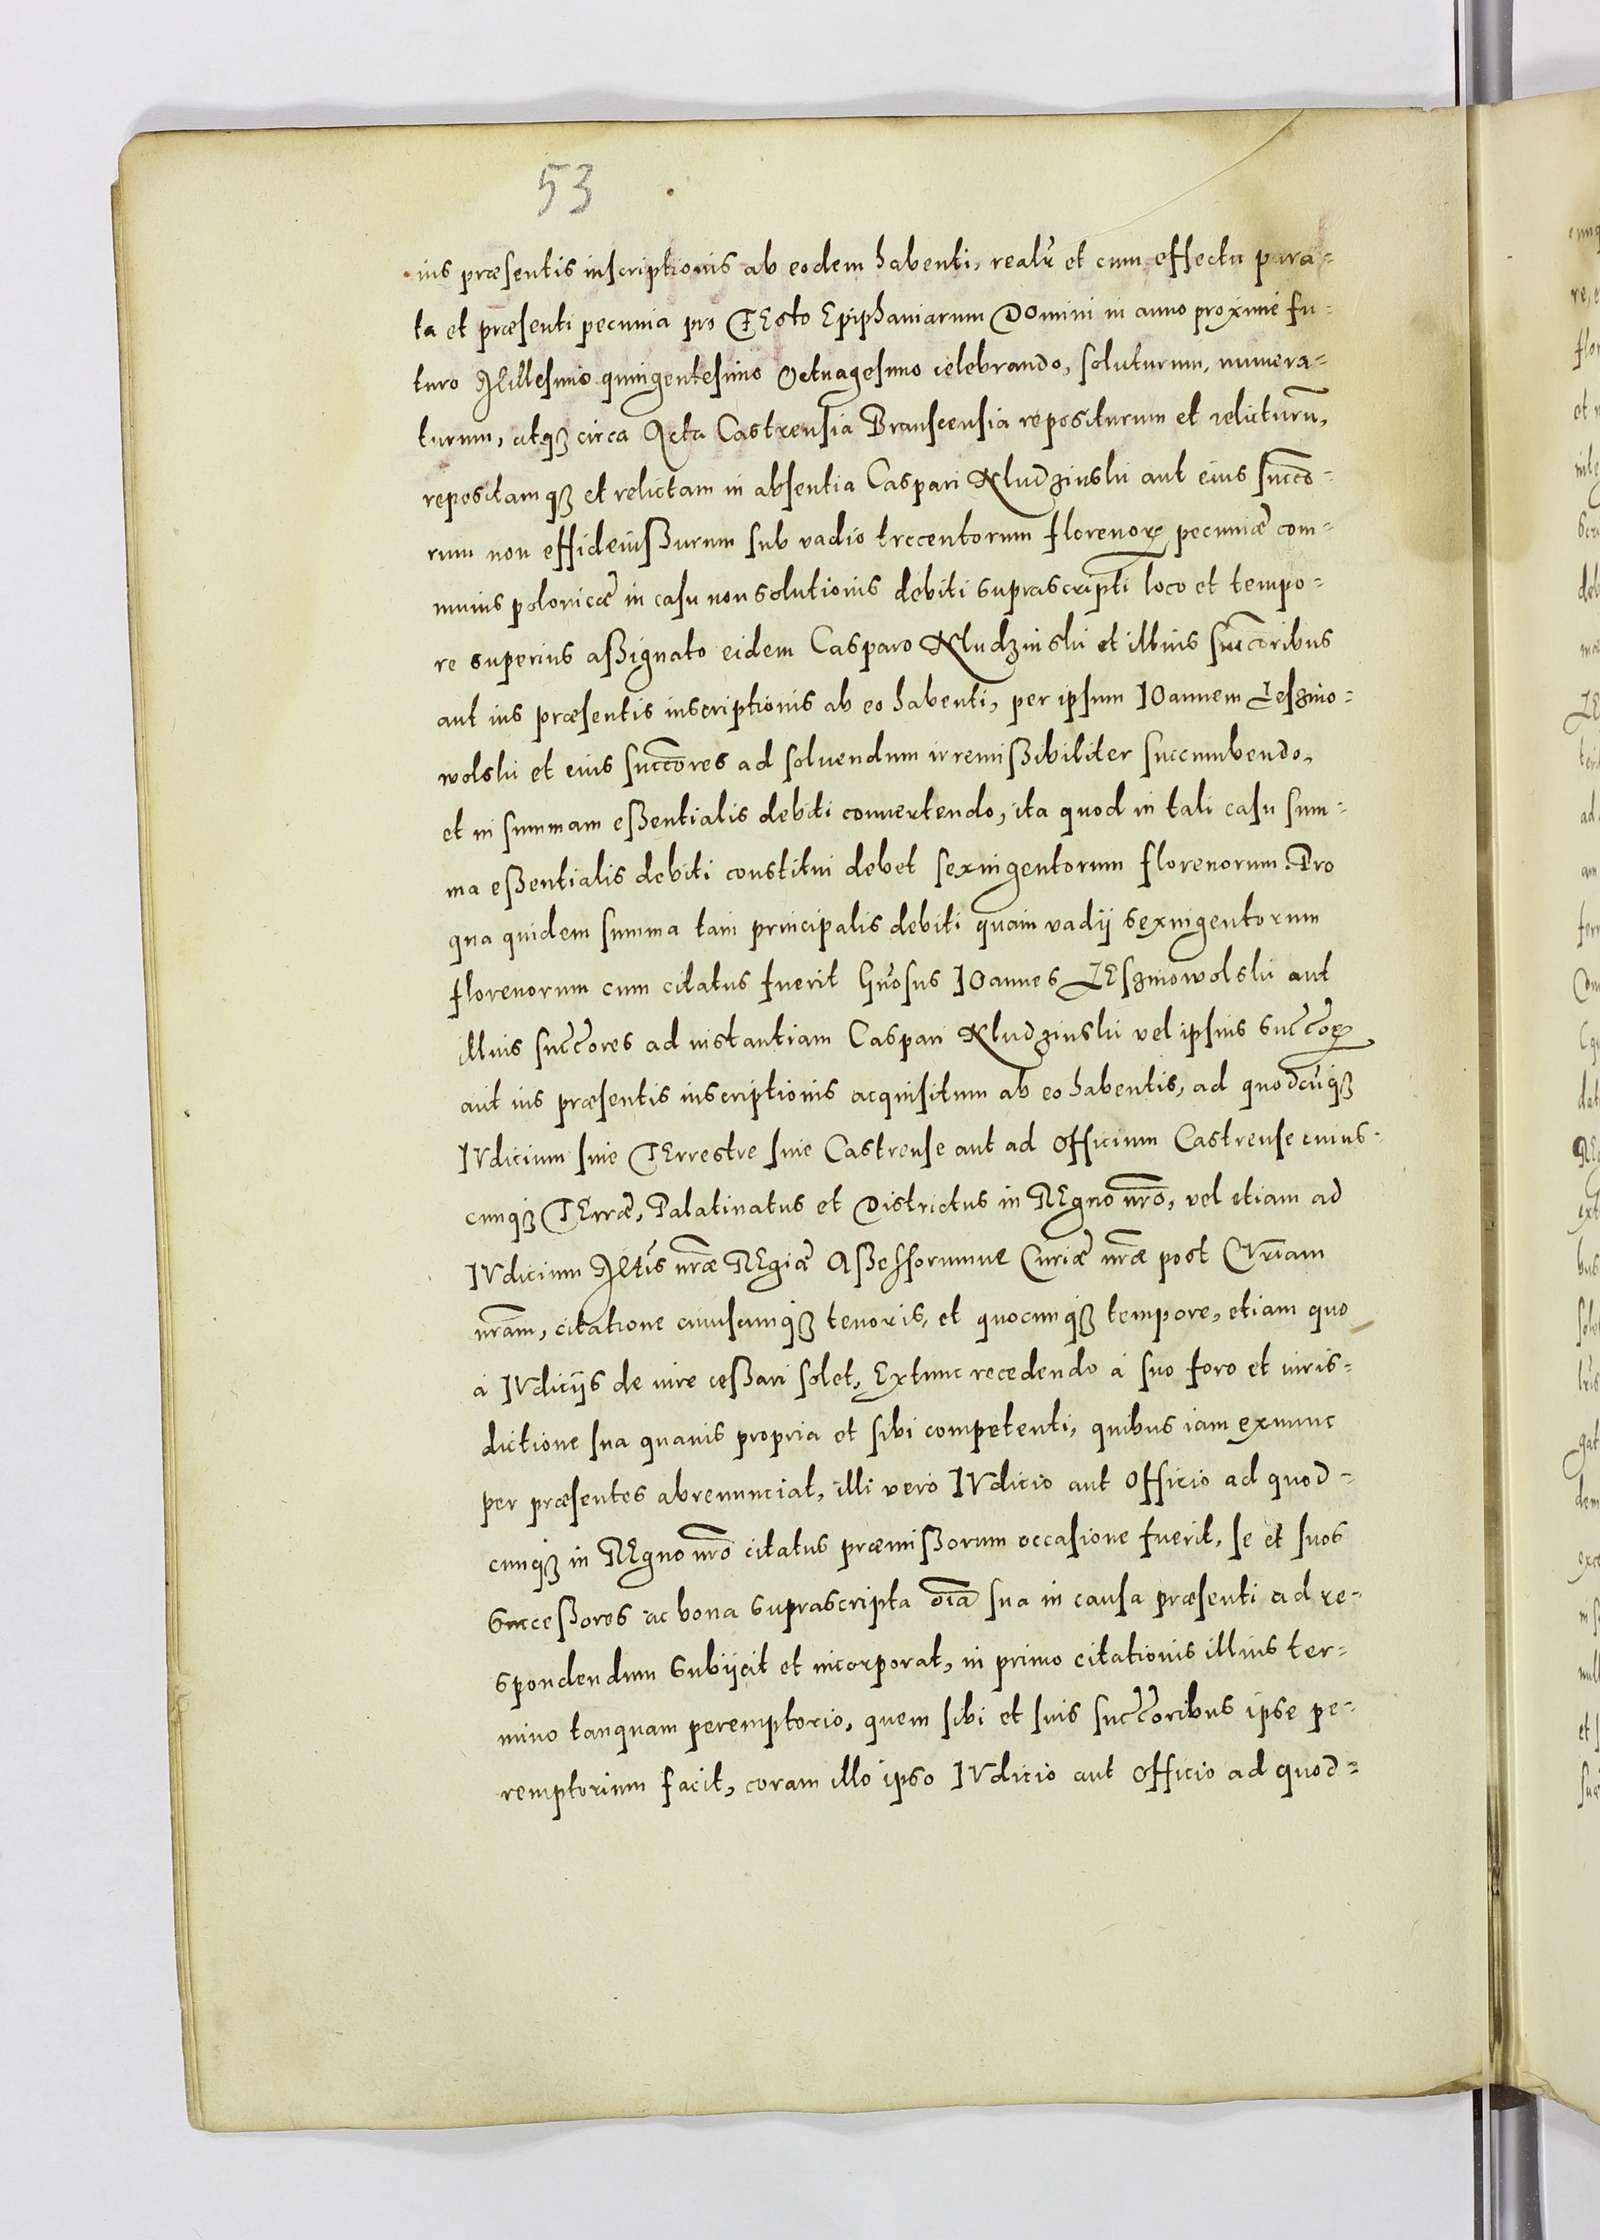 53
ius præsentis inscriptionis ab eodem habenti, realr̃ et cum effectu para-
ta et præsenti pecunia pro FEsto Epiphaniarum Domini in anno proximè fu-
turo Millesimo quingentesimo Octuagesimo celebrando, soluturum, numera-
turum, atq́ꝫ circa Acta Castrensia Branscensia repositurum et relicturũ,
repositamq́ꝫ et relictam in absentia Caspari Kludzinski aut eius succo-
rum non effideiußurum sub vadio trecentorum florenorꝝ pecuniæ com-
munis polonicæ in casu non solutionis debiti suprascripti loco et tempo-
re superius aßignato eidem Casparo Kludzinski et illius succoribus
aut ius præsentis inscriptionis ab eo habenti, per ipsum IOannem Leszmo-
wolski et eius succores ad soluendum irremißibiliter succumbendo,
et in summam eßentialis debiti conuertendo, ita quod in tali casu sum-
ma eßentialis debiti constitui debet sexingentorum florenorum. Pro
qua quidem summa tam principalis debiti quam vadij sexingentorum
florenorum cum citatus fuerit Gñosus IOannes LEszmowolski aut
illius succores ad instantiam Caspari Kludzinski vel ipsius succorꝝ
aut ius præsentis inscriptionis acquisitum ab eo habentis, ad quodcũq́ꝫ
IVdicium siue TErrestre siue Castrense aut ad Officium Castrense cuius-
cunq́ꝫ TErræ, Palatinatus et Districtus in REgno nr̃o, vel etiam ad
IVdicium Mtis nr̃æ REgiæ Aßessorumue Curiæ nr̃æ post CVriam
nr̃am, citatione cuiuscunq́ꝫ tenoris, et quocunq́ꝫ tempore, etiam quo
à IVdicijs de iure ceßari solet, Extunc recedendo à suo foro et iuris-
dictione sua quauis propria et sibi competenti, quibus iam exnunc
per præsentes abrenunciat, illi vero IVdicio aut Officio ad quod-
cunq́ꝫ in REgno nr̃o citatus præmißorum occasione fuerit, se et suos
Succeßores ac bona suprascripta oĩa sua in causa præsenti ad re-
spondendum subijcit et incorporat, in primo citationis illius ter-
mino tanquam peremptorio, quem sibi et suis succoribus ipse pe-
remptorium facit, coram illo ipso IVdicio aut Officio ad quod-